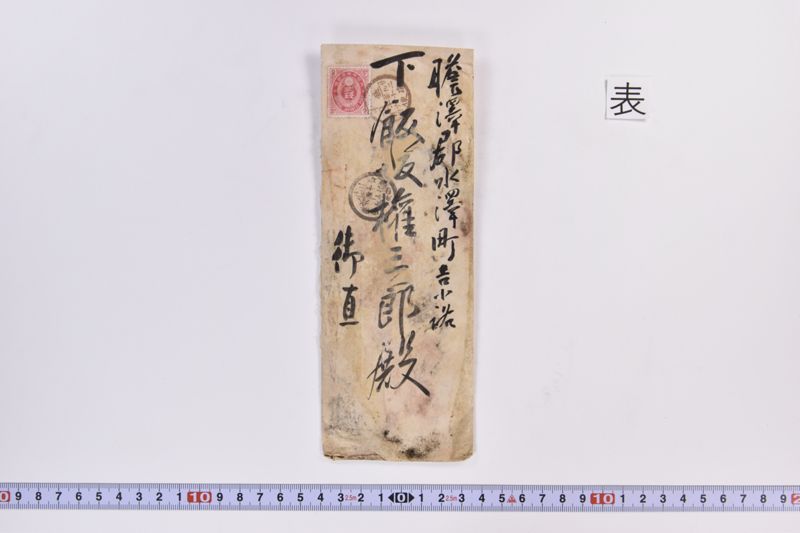 表
膽澤郡水澤町吉小路
下飯坂權三郎殿
御直
0 9 8 7 6 5 4 3 2 1 10 9 8 7 6 5 4 3 2.5m 2 1 0 1 2 2.5m 3 4 5 6 7 8 9 10 1 2 3 4 5 6 7 8 9 2